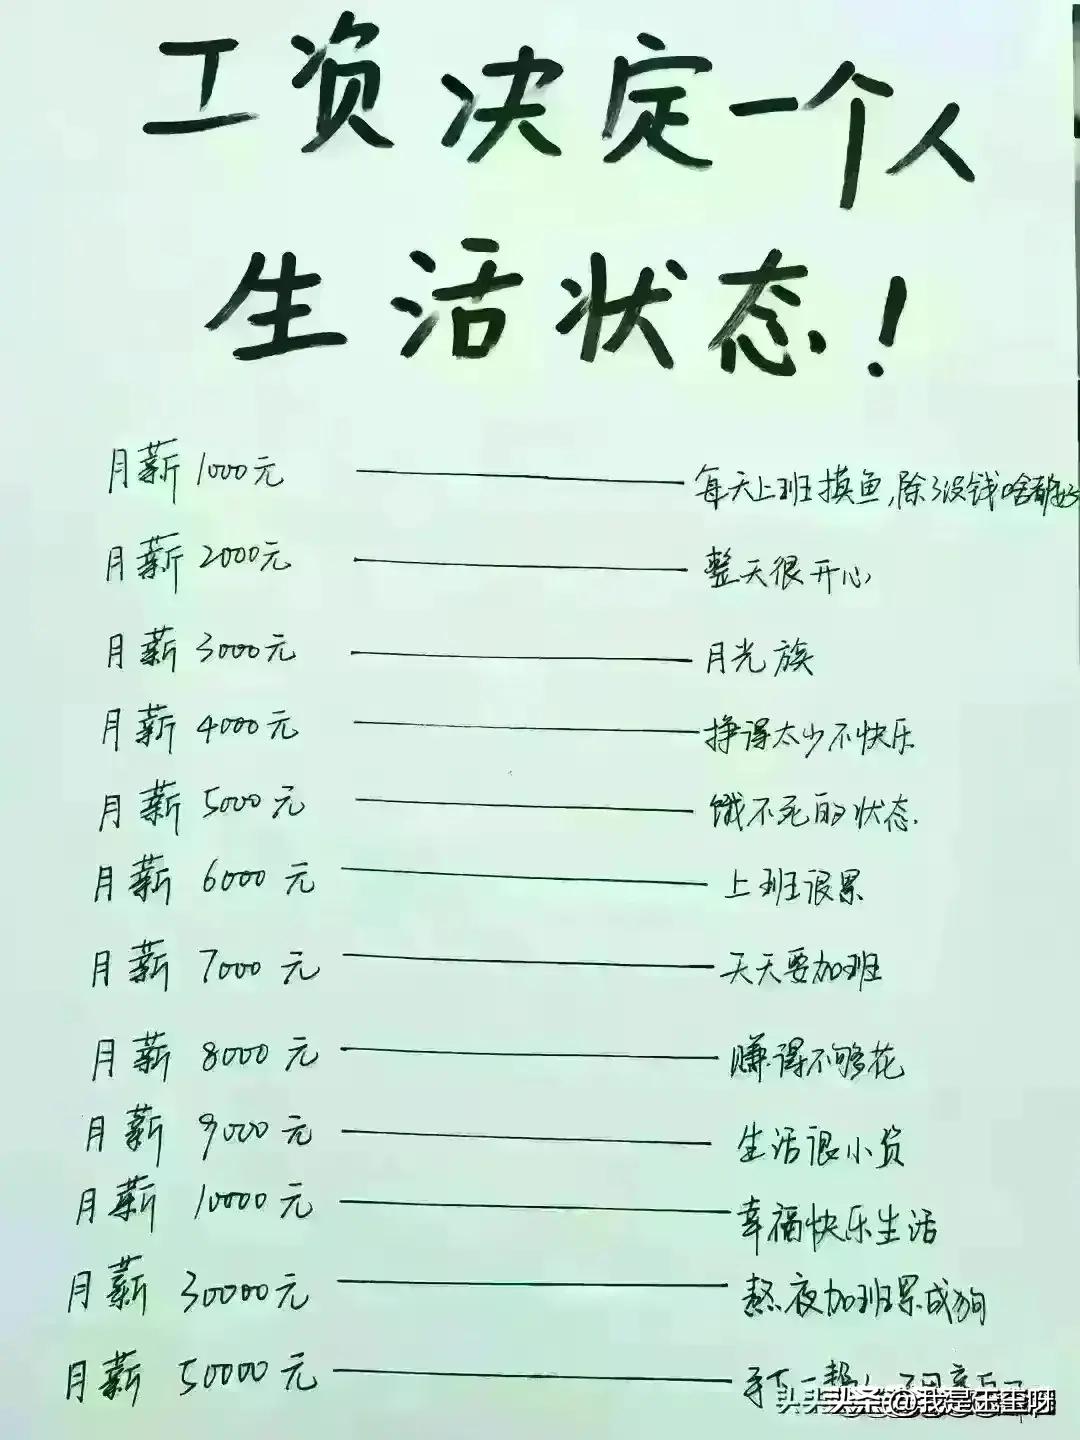 工资决定一个人
生活状态！
月薪1000元——每天上班摸鱼,除了没钱啥都好
月薪2000元——整天很开心
月薪3000元——月光族
月薪4000元——挣得太少不快乐
月薪5000元——饿不死的状态.
月薪6000元——上班很累
月薪7000元——天天要加班
月薪8000元——赚得不够花
月薪9000元——生活很小资
月薪10000元——幸福快乐生活
月薪30000元——熬夜加班累成狗
月薪50000元——手下一帮
头条@我是玉蛋呀